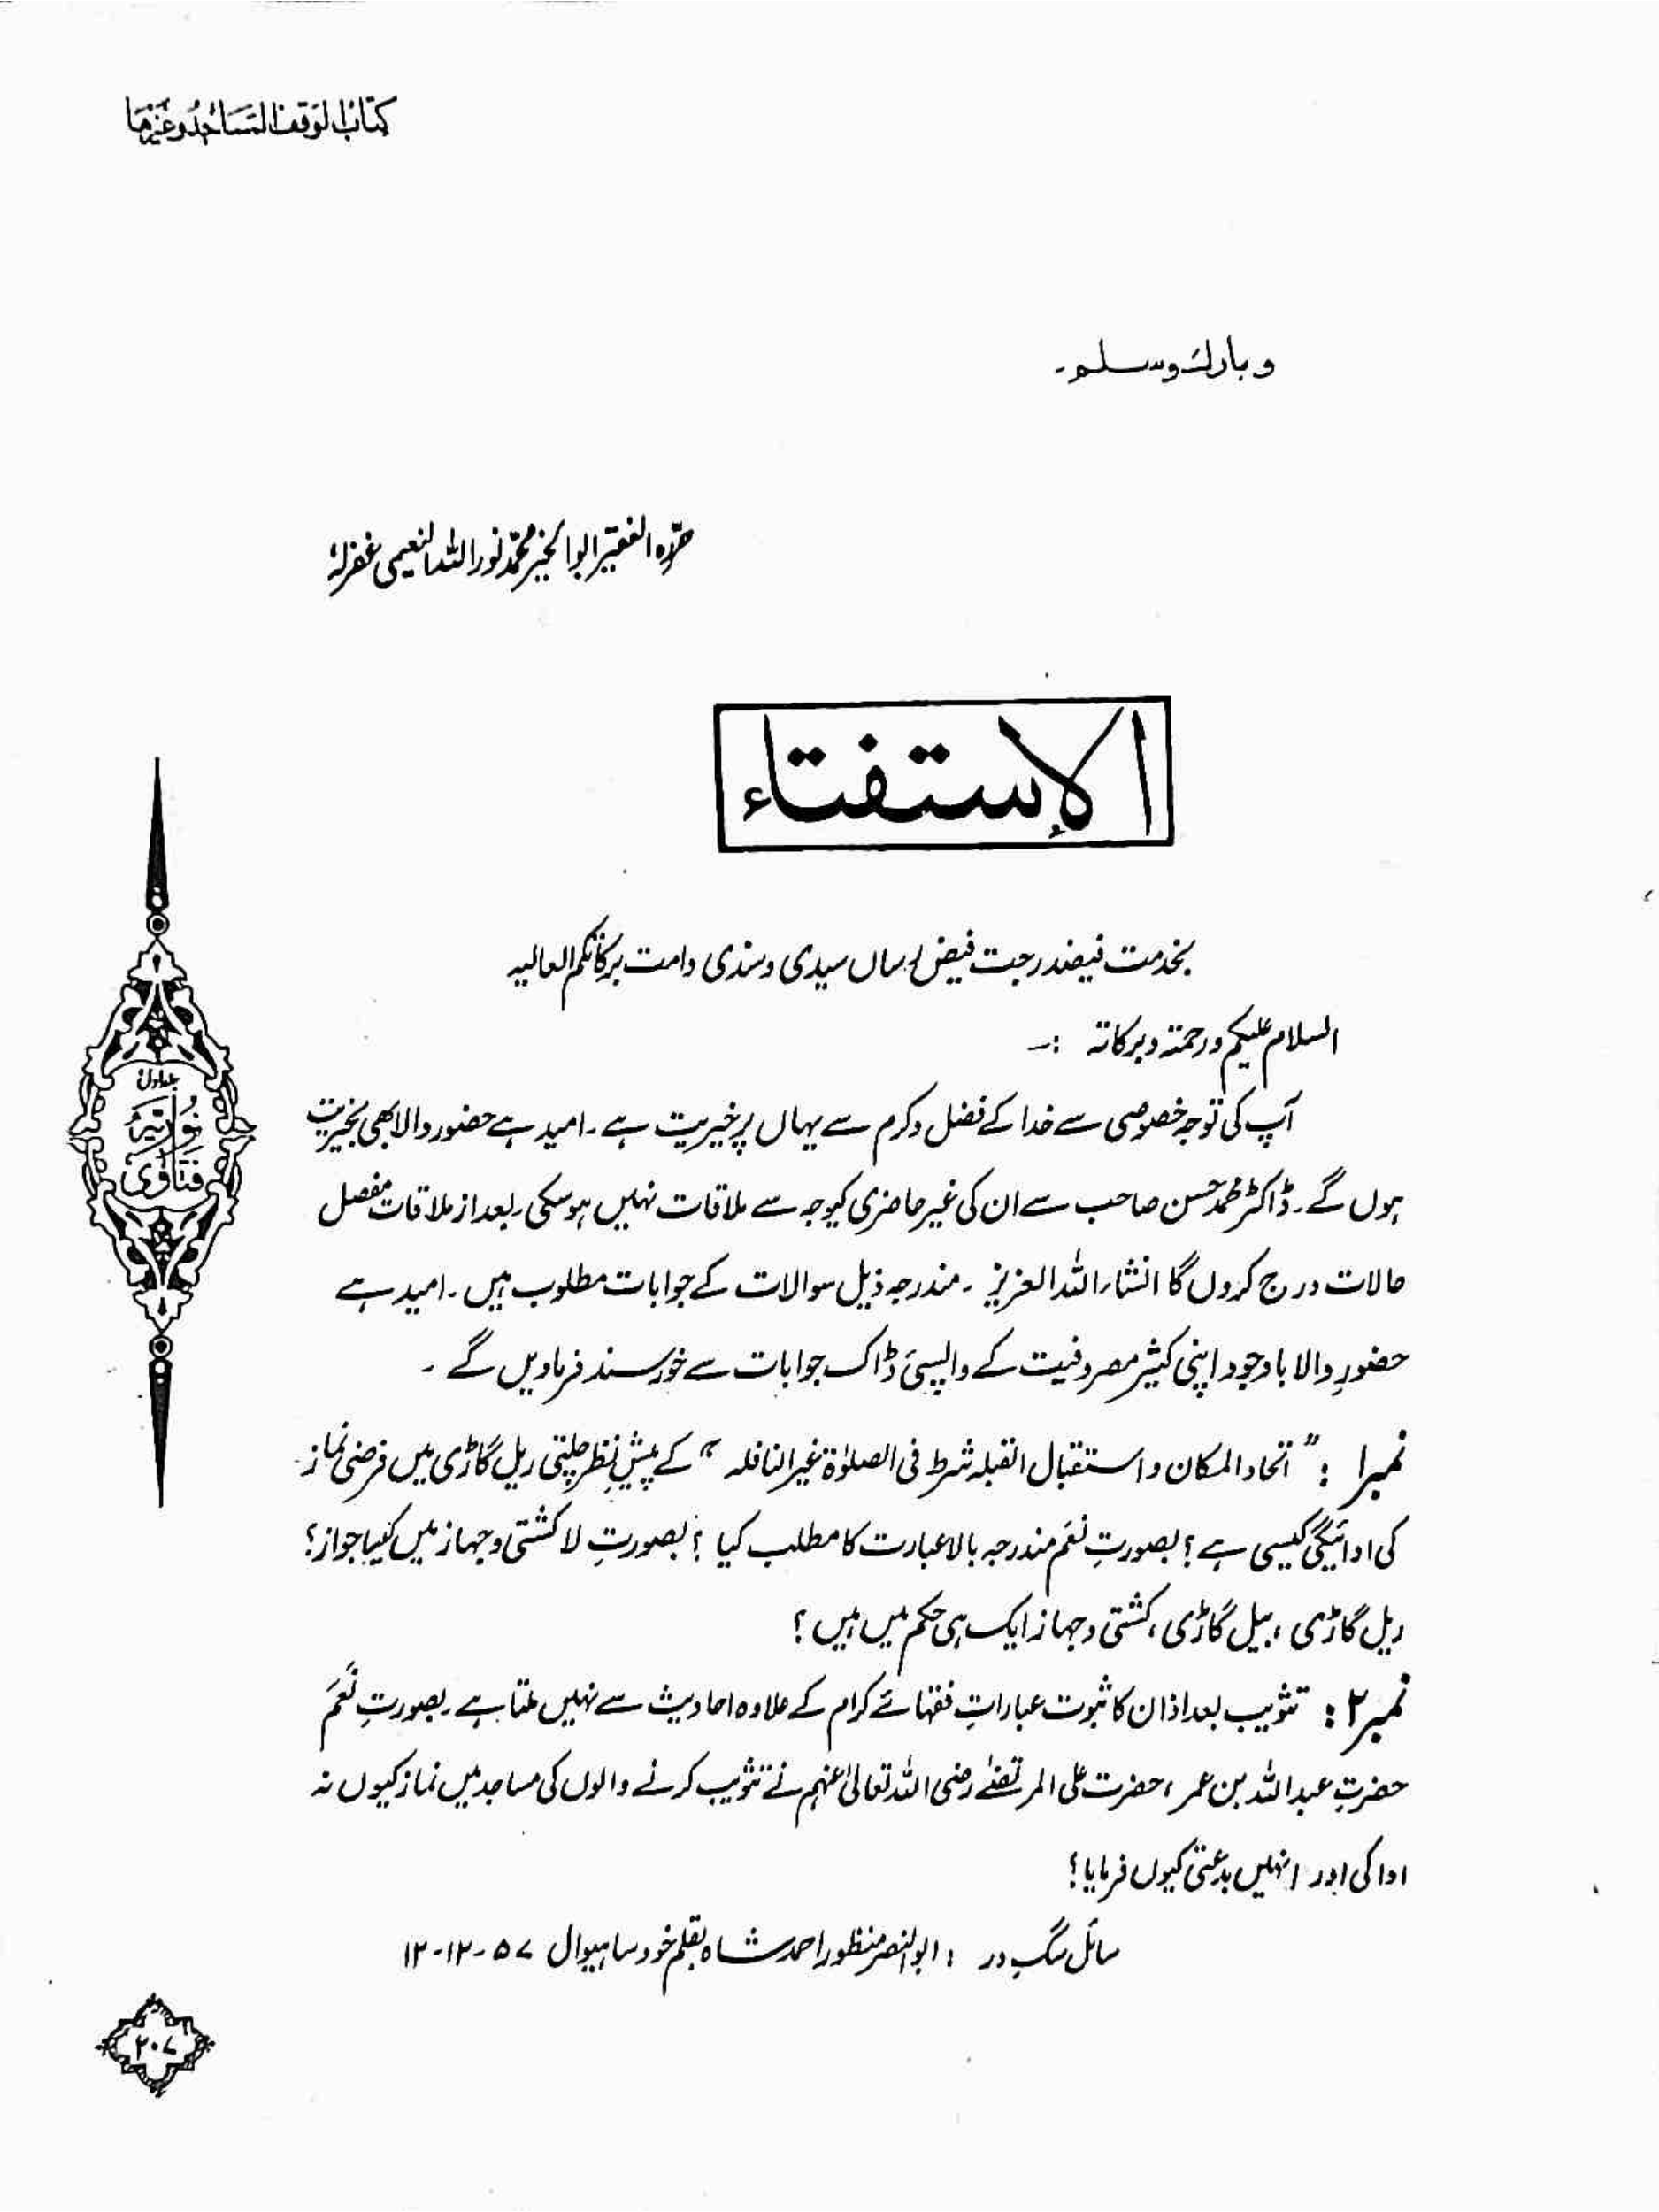 کتاب الوقف المساجد وغیرہا
وبارک وسلم۔
حرّرہ الفقیر ابوالخیر محمّد نور اللہ النعیمی غفرلہٗ
الإستفتاء
بخدمت فیضدرجت فیض رساں سیدی وسندی دامت برکاتکم العالیہ
السلام علیکم ورحمتہ وبرکاتہ :۔
آپ کی توجہِ خصوصی سے خدا کے فضل وکرم سے یہاں پر خیریت ہے۔ امید ہے حضور والا بھی بخیریت
ہوں گے۔ ڈاکٹر محمد حسن صاحب سے ان کی غیر حاضری کیوجہ سے ملاقات نہیں ہوسکی۔ بعد از ملاقات مفصل
حالات درج کروں گا انشاء اللہ العزیز ۔ مندرجہ ذیل سوالات کے جوابات مطلوب ہیں۔ امید ہے
حضورِ والا باوجود اپنی کثیر مصروفیت کے واپسیٔ ڈاک جوابات سے خورسند فرماویں گے ۔
نمبر۱ : ” اتحاد المکان و استقبال القبلہ شرط فی الصلوٰۃ غیر النافلہ “ کے پیشِ نظر چلتی ریل گاڑی میں فرضی نماز
کی ادائیگی کیسی ہے ؟ بصورتِ نعَم مندرجہ بالا عبارت کا مطلب کیا ؟ بصورتِ لا کشتی وجہاز میں کیا جواز؟
ریل گاڑی ، بیل گاڑی، کشتی وجہاز ایک ہی حکم میں ہیں ؟
نمبر۲ : تثویب بعد اذان کا ثبوت عباراتِ فقہائے کرام کے علاوہ احادیث سے نہیں ملتا ہے۔ بصورتِ نَعَم
حضرتِ عبداللہ بن عمر ، حضرت علی المرتضےٰ رضی اللہ تعالیٰ عنہم نے تثویب کرنے والوں کی مساجد میں نماز کیوں نہ
ادا کی اور انہیں بدعتی کیوں فرمایا؟
سائل سگِ در : ابوالنصر منظور احمد شاہ بقلم خود ساہیوال ۵۷-۱۲-۱۲
جلد اول
نُوریّہ
فتاوٰی
۲۰۷